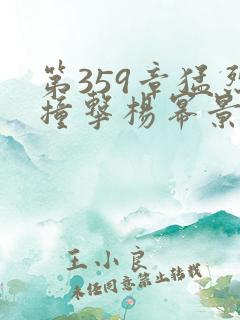 第359章猛烈
撞撃楊幂景
王小良
未经同意禁止转载